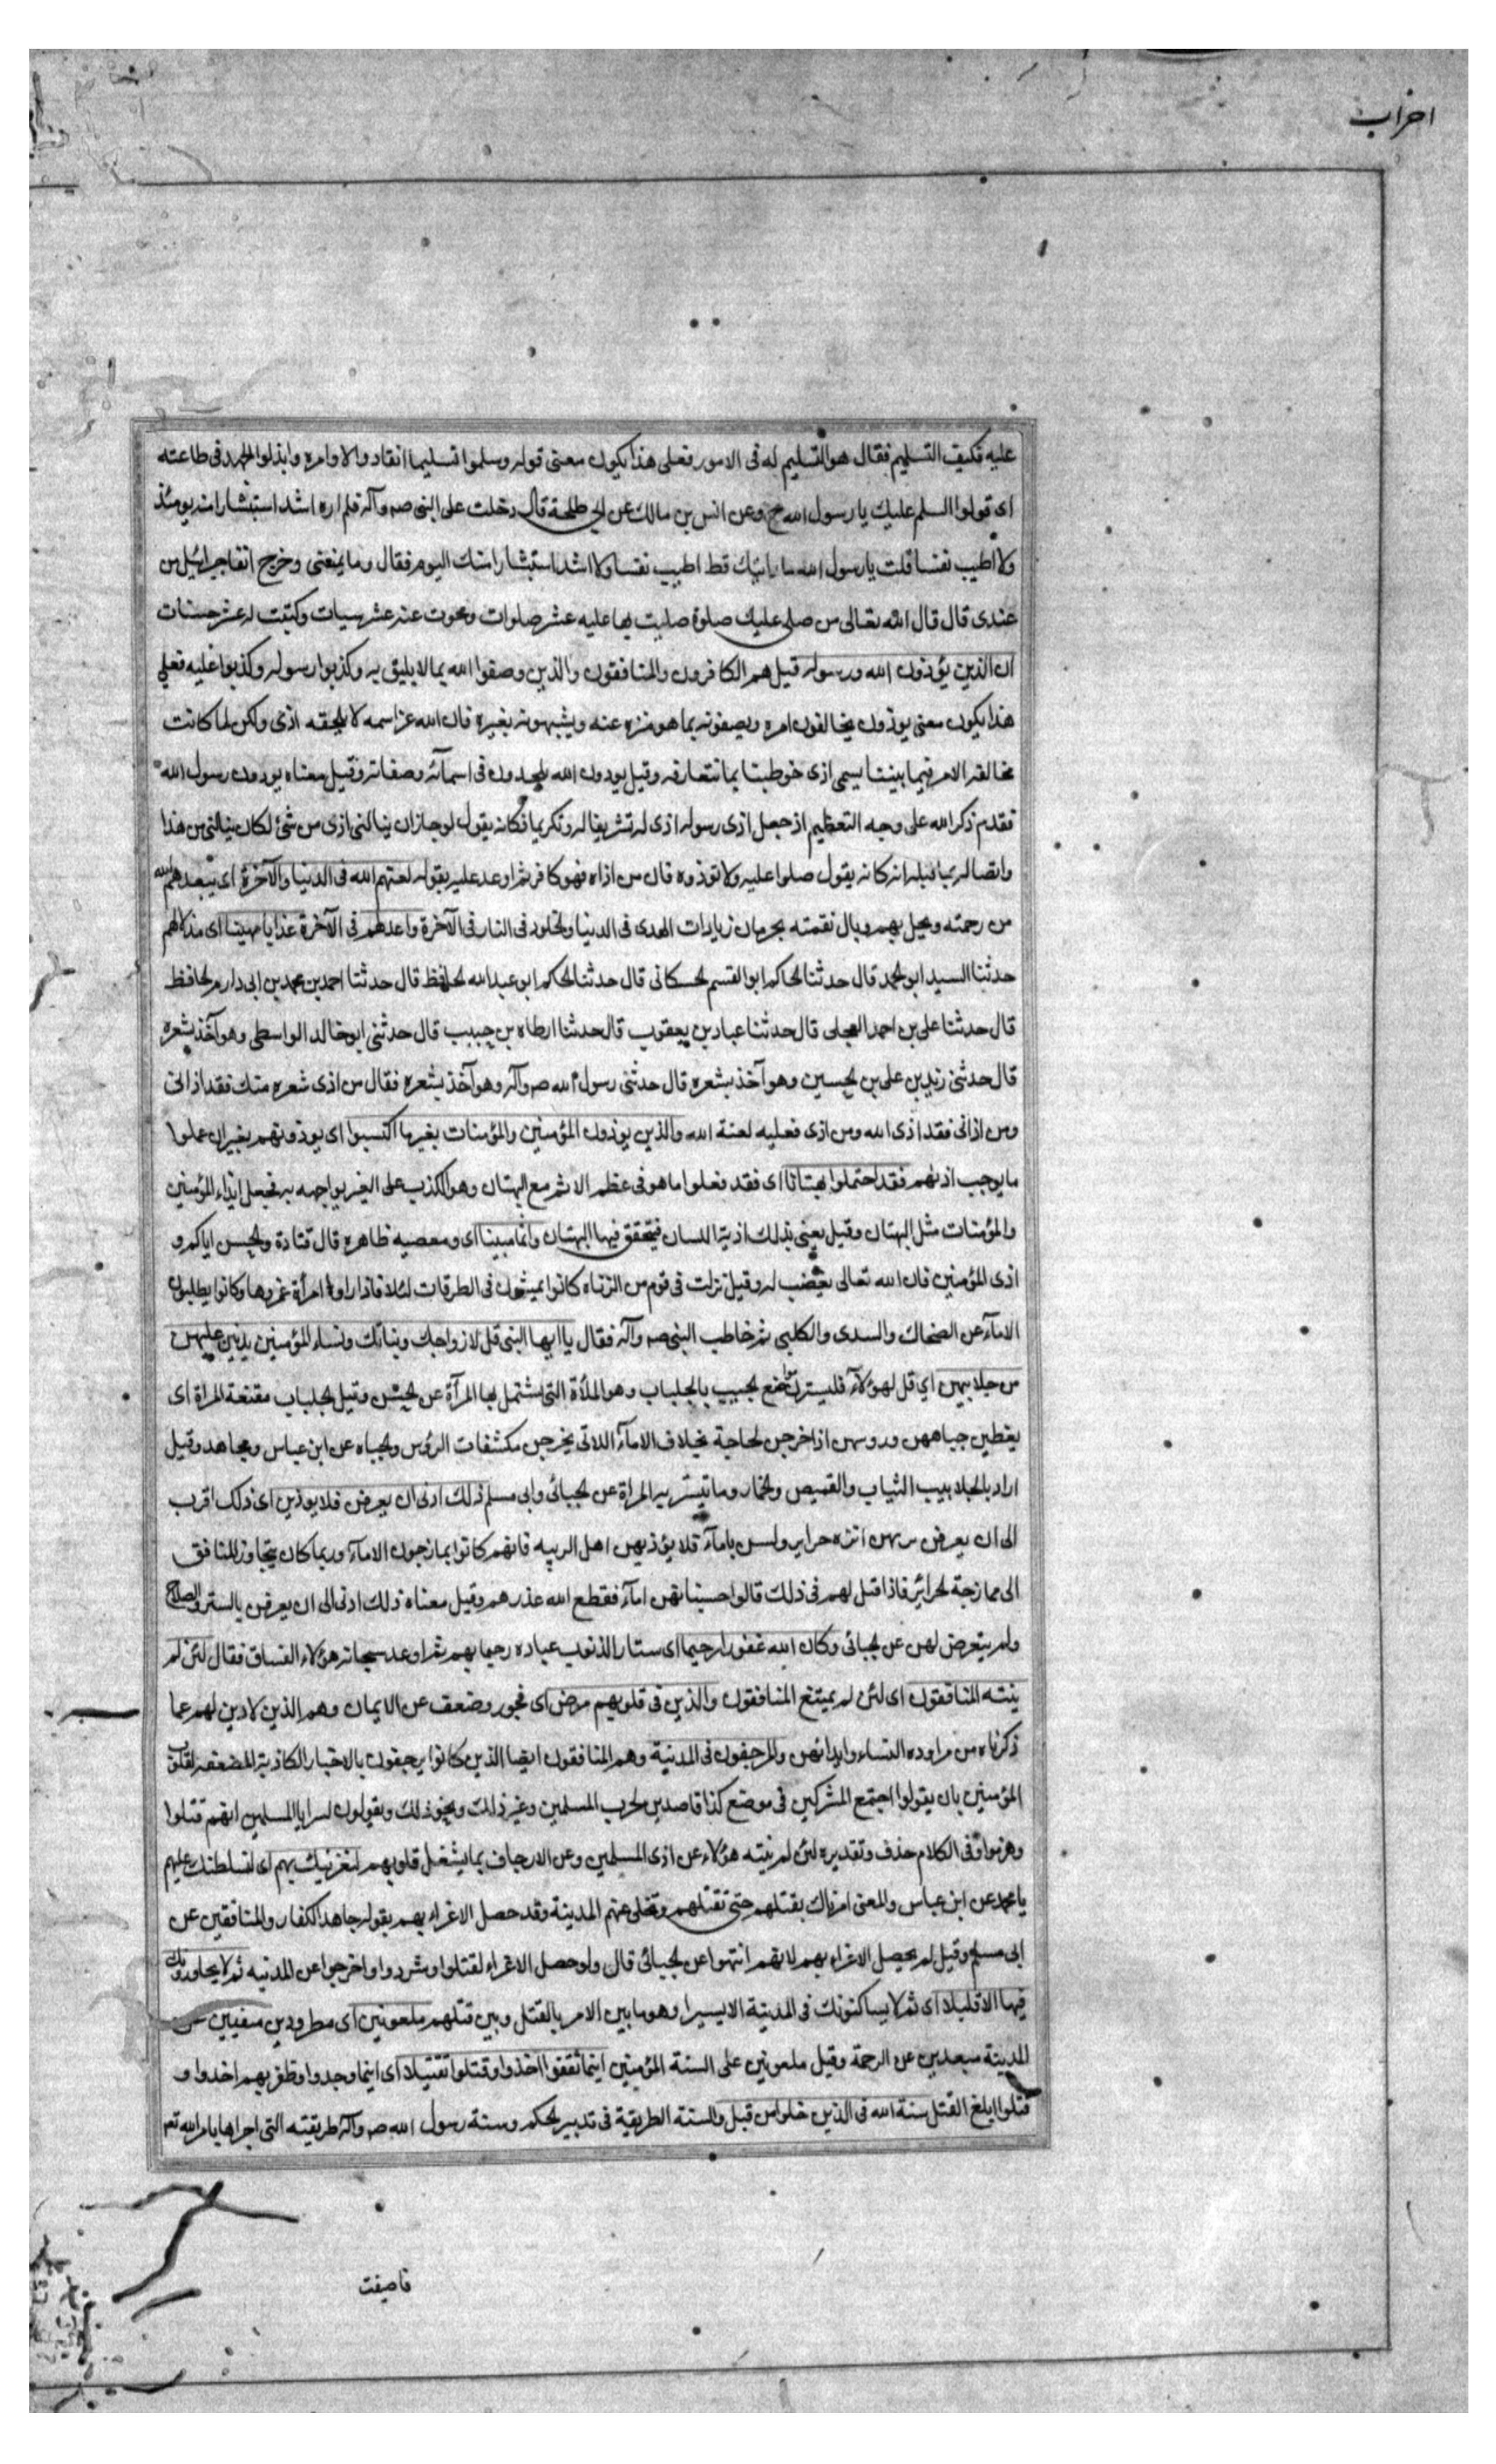 احزاب
عليه فكيف التسليم فقال هو التسليم له فى الامور فعلى هذا يكون معنى قوله وسلموا تسليما انقادوا لاوامره وابذلوا الجهد فى طاعته
اى قولوا السلم عليك يا رسول الله وعن انس بن مالك عن ابى طلحة قال دخلت على النبى صه وآله فلم اره اشد استبشارا منه يومئذ
ولا اطيب نفسا قلت يا رسول الله ما رايتك قط اطيب نفسا ولا اشد استبشارا منك اليوم فقال وما يمنعنى وخرج انفا جبرائيل من
عندى قال قال الله تعالى من صلى عليك صلوة صليت بها عليه عشر صلوات ومحوت عنه عشر سيات وكتبت له عشر حسنات
ان الذين يؤذون الله ورسوله قيل هم الكافرون والمنافقون والذين وصفوا الله بما لا يليق به وكذبوا رسوله وكذبوا عليه فعلى
هذا يكون معنى يوذون يخالفون امره ويصفونه بما هو منزه عنه ويشبهونه بغيره فان الله عز اسمه لا يلحقه اذى ولكن لما كانت
مخالفة الامر فيما بيننا يسمى اذى خوطبنا بما نتعارفه وقيل يوذون الله يلحدون فى اسمآئه وصفاته وقيل معناه يوذون رسول الله
فقدم ذكر الله على وجه التعظيم اذ جعل اذى رسوله اذى له تشريفا له وتكريما فكانه يقول لو جاز ان ينالنى اذى من شئ لكان ينالنى من هذا
واتصاله بما قبله انه كانه يقول صلوا عليه ولا توذوه فان من اذاه فهو كافر ثم اوعد عليه بقوله لعنهم الله فى الدنيا والآخرة اى يبعدهم الله
من رحمته ويحل بهم وبال نقمته بحرمان زيادات الهدى فى الدنيا والخلود فى النار فى الآخرة واعد لهم فى الآخرة عذابا مهينا اى مذلا لهم
حدثنا السيد ابو محمد قال حدثنا الحاكم ابو القسم الحسكانى قال حدثنا الحاكم ابو عبد الله الحافظ قال حدثنا احمد بن محمد بن ابى دارم الحافظ
قال حدثنا على بن احمد العجلى قال حدثنا عباد بن يعقوب قال حدثنا ارطاه بن حبيب قال حدثنى ابو خالد الواسطى وهو آخذ بشعره
قال حدثنى زيد بن على بن الحسين وهو آخذ بشعره قال حدثنى رسول الله صه وآله وهو آخذ بشعره فقال من اذى شعره منك فقد اذانى
ومن اذانى فقد اذى الله ومن اذى فعليه لعنة الله والذين يوذون المؤمنين والمؤمنات بغير ما اكتسبوا اى يوذونهم بغير ان عملوا
ما يوجب اذيهم فقد احتملوا بهتانا اى فقد فعلوا ما هو فى عظم الاثم مع البهتان وهو الكذب على الغير يواجهه به فجعل ايذاء المؤمنين
والمؤمنات مثل البهتان وقيل يعنى بذلك اذية اللسان فيتحقق فيها البهتان واثما مبينا اى ومعصيه ظاهره قال قتادة والحسن اياكم و
اذى المؤمنين فان الله تعالى يغضب له وقيل نزلت فى قوم من الزناه كانوا يمشون فى الطرقات ليلا فاذا راوا امرأة غمزوها وكانوا يطلبون
الامآء عن الضحاك والسدى والكلبى ثم خاطب النبى صه وآله فقال يا ايها النبى قل لازواجك وبناتك ونساء المؤمنين يدنين عليهن
من جلابيبهن اى قل لهؤلآء فليسترن موضع الجيب بالجلباب وهو الملأة التى تشتمل بها المرآة عن الحسن وقيل الجلباب مقنعة المراة اى
يغطين جباههن وروسهن اذا خرجن لحاجة بخلاف الامآء اللاتى يخرجن مكشفات الرؤس والجباه عن ابن عباس ومجاهد وقيل
اراد بالجلابيب الثياب والقميص والخمار وما تستتر به المراة عن الجبائى وابى مسلم ذلك ادنى ان يعرفن فلا يوذين اى ذلك اقرب
الى ان يعرفن بزيهن انهن حراير ولسن بامآء فلا يؤذيهن اهل الريبه فانهم كانوا يمازحون الامآء وربما كان يتجاوز المنافق
الى ممازحة الحرائر فاذا قيل لهم فى ذلك قالوا حسبناهن امآء فقطع الله عذرهم وقيل معناه ذلك ادنى الى ان يعرفن بالستر والصلاح
ولم يتعرض لهن عن الجبائى وكان الله غفورا رحيما اى ستار الذنوب عباده رحيما بهم ثم اوعد سبحانه هؤلاء الفساق فقال لئن لم
ينته المنافقون اى لئن لم يمتنع المنافقون والذين فى قلوبهم مرض اى فجور وضعف عن الايمان وهم الذين لا دين لهم عما
ذكرناه من مراوده النساء وايذائهن والمرجفون فى المدينة وهم المنافقون ايضا الذين كانوا يرجفون بالاخبار الكاذبة المضعفه لقلوب
المؤمنين بان يقولوا اجتمع المشركين فى موضع كذا قاصدين لحرب المسلمين وغير ذلك ونحو ذلك ويقولون لسرايا المسلمين انهم قتلوا
وهزموا وفى الكلام حذف وتقديره لئن لم ينته هؤلاء عن اذى المسلمين وعن الارجاف بما يشغل قلوبهم لنغرينك بهم اى لنسلطنك عليهم
يا محمد عن ابن عباس والمعنى امرناك بقتلهم حتى تقتلهم وتخلى عنهم المدينة وقد حصل الاغراء بهم بقوله جاهد الكفار والمنافقين عن
ابى مسلم وقيل لم يحصل الاغراء بهم لانهم انتهوا عن الجبائى قال ولو حصل الاغراء لقتلوا وشردوا واخرجوا عن المدينه ثم لا يجاورونك
فيها الا قليلا اى ثم لا يساكنونك فى المدينة الا يسيرا وهو ما بين الامر بالقتل وبين قتلهم ملعونين اى مطرودين منفيين عن
المدينة مبعدين عن الرحمة وقيل ملعونين على السنة المؤمنين اينما ثقفوا اخذوا وقتلوا تقتيلا اى اينما وجدوا وظفر بهم اخذوا و
قتلوا ابلغ القتل سنة الله فى الذين خلوا من قبل والسنة الطريقة فى تدبير الحكم وسنة رسول الله صه وآله طريقته التى اجراها بامر الله تعه
فاصيفت